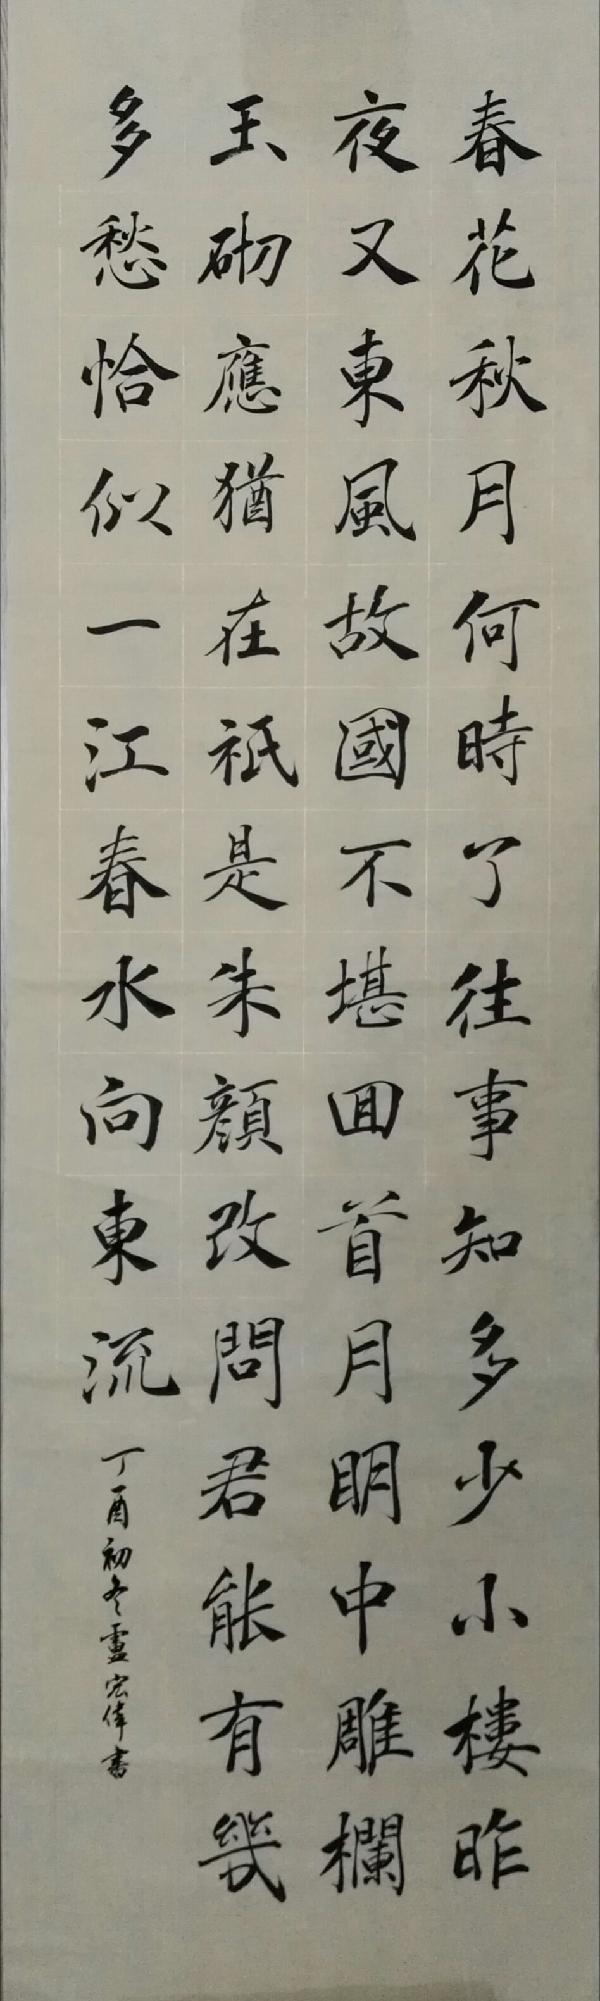 春花秋月何時了往事知多少小樓昨
夜又東風故國不堪回首月明中雕欄
玉砌應猶在祇是朱顏改問君能有幾
多愁恰似一江春水向東流
丁酉初冬盧宏偉書